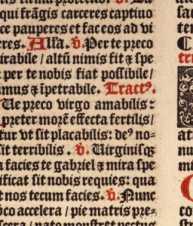 qui frāgis carceres captiuo
ce pauperes et fac eos ad vi
ceres. Alla. ℣. Per te preco
irabile / altū nimis fit ⁊ spe
per te nobis fiat possibile /
imus ⁊ īpetrabile. Tractꝰ.
Ue preco virgo amabilis:
preter morē effecta fertilis /
tur vt sit placabilis: deꝰ no-
sit terribilis. ℣. Uirginisqꝫ
a facies te gabriel ⁊ mira spe
ificat sit nobis requies: qua
t nos tecum facies. ℣. Nunc
oco accelera / pie matris pre-